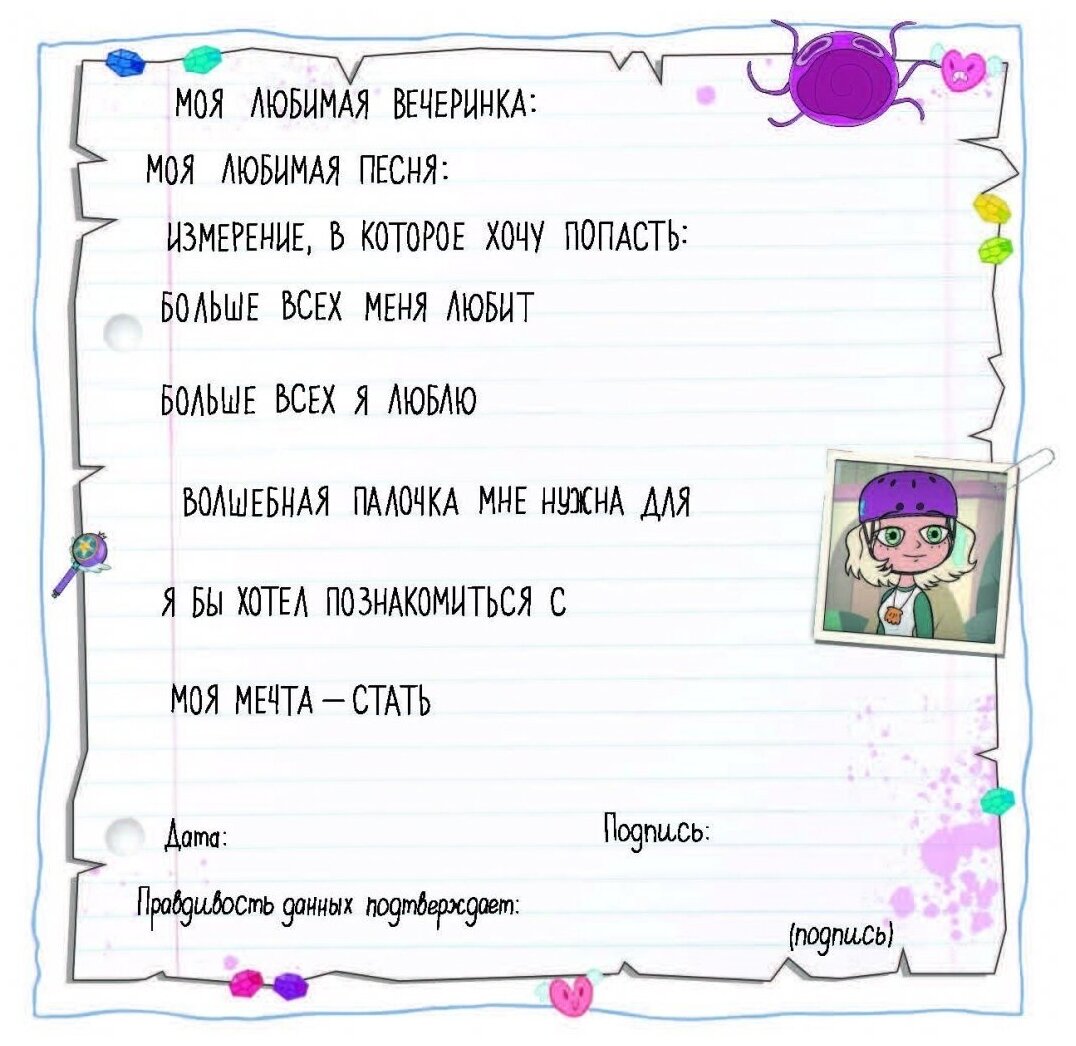 МОЯ ЛЮБИМАЯ ВЕЧЕРИНКА:
МОЯ ЛЮБИМАЯ ПЕСНЯ:
ИЗМЕРЕНИЕ, В КОТОРОЕ ХОЧУ ПОПАСТЬ:
БОЛЬШЕ ВСЕХ МЕНЯ ЛЮБИТ
БОЛЬШЕ ВСЕХ Я ЛЮБЛЮ
ВОЛШЕБНАЯ ПАЛОЧКА МНЕ НУЖНА ДЛЯ
Я БЫ ХОТЕЛ ПОЗНАКОМИТЬСЯ С
МОЯ МЕЧТА – СТАТЬ
Дата: Подпись:
Правдивость данных подтверждает:
(подпись)